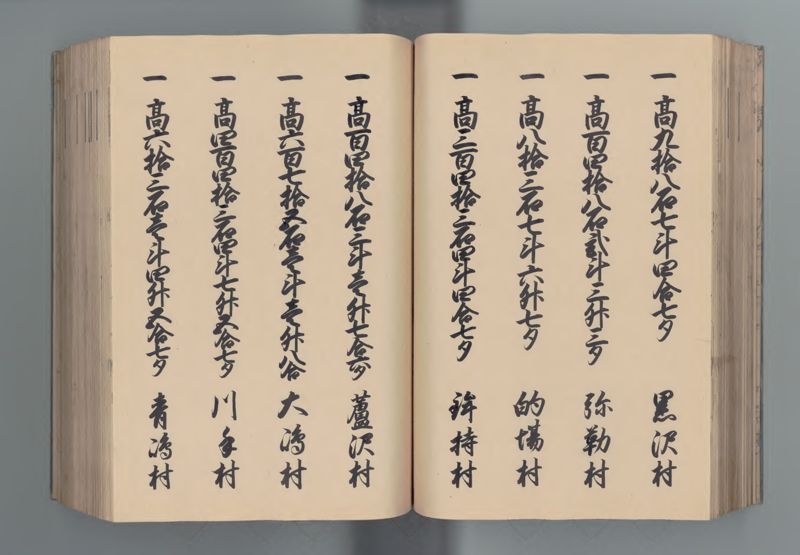 一 高九拾八石七斗四合七夕 黒沢村
一 高百四拾八石弐斗三升三夕 弥勒村
一 高八拾三石七斗六升七夕 的場村
一 高三百四拾三石四斗四合七夕 鉾持村
一 高百四拾八石三斗壱升七合六夕 蘆沢村
一 高六百七拾五石壱斗壱升八合 大嶋村
一 高四百四拾三石四斗七升五合七夕 川手村
一 高六拾三石壱斗四升五合七夕 青嶋村